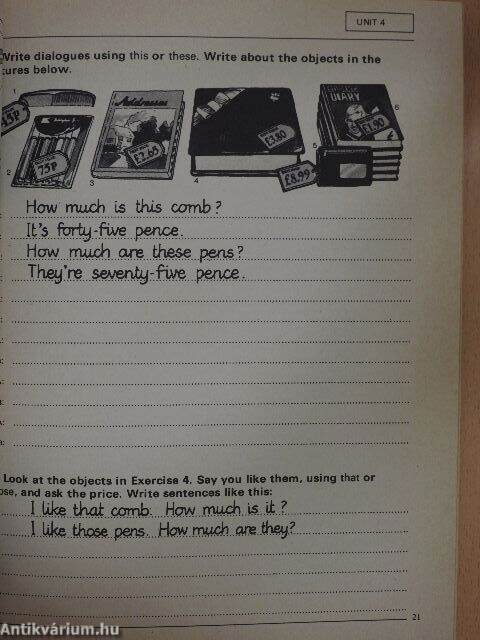 UNIT 4
Write dialogues using this or these. Write about the objects in the
tures below.
1
45P
2
75P
3
Addresses
£2.65
4
£3.80
5
£8.99
6
DIARY
£1.90
How much is this comb?
It's forty-five pence.
How much are these pens?
They're seventy-five pence.
Look at the objects in Exercise 4. Say you like them, using that or
ose, and ask the price. Write sentences like this:
I like that comb. How much is it?
I like those pens. How much are they?
21
Antikvárium.hu